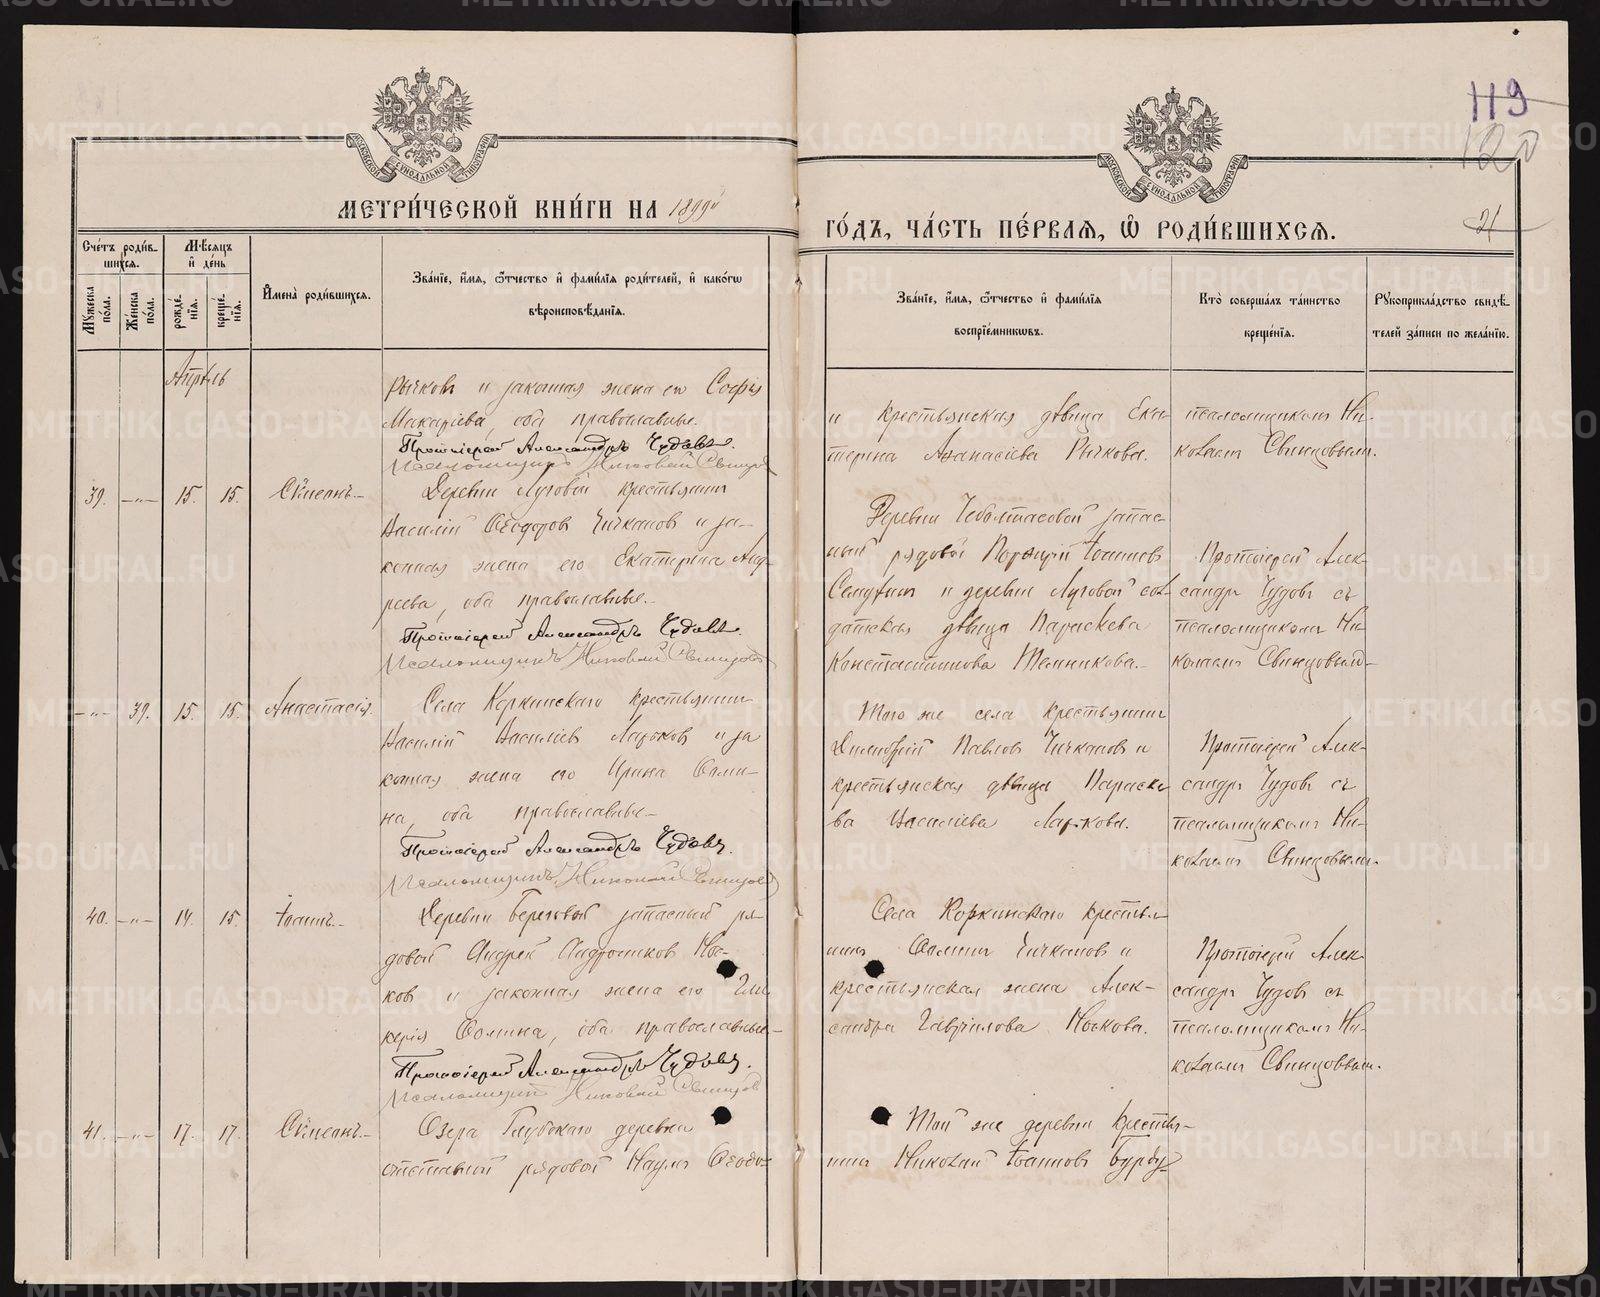 119
120
21
МЕТРИ́ЧЕСКОЙ КНИ́ГИ НА 1899й
ГО́ДЪ, ЧА́СТЬ ПЕ́РВАѦ, Ѽ РОДИ́ВШИХСѦ.
Сче́тъ роди́в-
шихсѧ.
Мꙋ́жеска
по́ла.
Же́нска
по́ла.
Мѣ́сѧцъ
и҆ де́нь
рожде́-
нїѧ.
креще́-
нїѧ.
И҆мена̀ роди́вшихсѧ.
Зва́нїе, и҆́мѧ, ѻ҆́тчество и҆ фами́лїѧ роди́телей, и҆ како́гѡ
вѣроисповѣ́данїѧ.
Зва́нїе, и҆́мѧ, ѻ҆́тчество и҆ фами́лїѧ
воспрїе́мникѡвъ.
Кто̀ соверша́лъ та́инство
креще́нїѧ.
Рꙋкоприкла́дство свидѣ́-
телей за́писи по жела́нїю.
Апрѣль
Рычковъ и законная жена его Софія
Макаріева, оба православные.
Протоіерей Александръ Чудовъ.
Псаломщикъ Николай Свинцовъ
и крестьянская дѣвица Ека-
терина Аѳанасіева Рычкова.
псаломщикомъ Ни-
колаемъ Свинцовымъ.
39. —„— 15. 15. Сѵмеонъ.
Деревни Луговой крестьянинъ
Василій Ѳеодоровъ Чичкановъ и за-
конная жена его Екатерина Анд-
реева, оба православные.
Протоіерей Александръ Чудовъ.
Псаломщикъ Николай Свинцовъ
Деревни запас-
ный рядовой Порфирій Іоанновъ
и деревни Луговой сол-
датская дѣвица Параскева
Константинова Темникова.
Протоіерей Алек-
сандръ Чудовъ съ
псаломщикомъ Ни-
колаемъ Свинцовымъ
—„— 39. 15. 15. Анастасія.
Села Коркинскаго крестьянинъ
Василій Василіевъ Ларьковъ и за
конная жена его Ирина Ѳоми-
на, оба православные
Протоіерей Александръ Чудовъ.
Псаломщикъ Николай Свинцовъ
Того же села крестьянинъ
Димитрій Павловъ Чичкановъ и
крестьянская дѣвица Параске
ва Василіева Ларькова.
Протоіерей Алек-
сандръ Чудовъ съ
псаломщикомъ Ни-
колаемъ Свинцовымъ.
40. —„— 14. 15. Іоаннъ.
Деревни Береговой запасный ря-
довой Андрей Андрониковъ Нос-
ковъ и законная жена его Гли
керія Ѳомина, оба православные
Протоіерей Александръ Чудовъ.
Псаломщикъ Николай Свинцовъ
Села Коркинскаго крестья-
нинъ Ѳомины Чичкановъ и
крестьянская жена Алек-
сандра Гавріилова Носкова.
Протоіерей Алек-
сандръ Чудовъ съ
псаломщикомъ Ни-
колаемъ Свинцовымъ.
41. —„— 17. 17. Сѵмеонъ.
Озера Глубокаго деревни
отставной рядовой Наумъ Ѳеодо-
Той же деревни крестья-
нинъ Николай Іоанновъ Бурду-